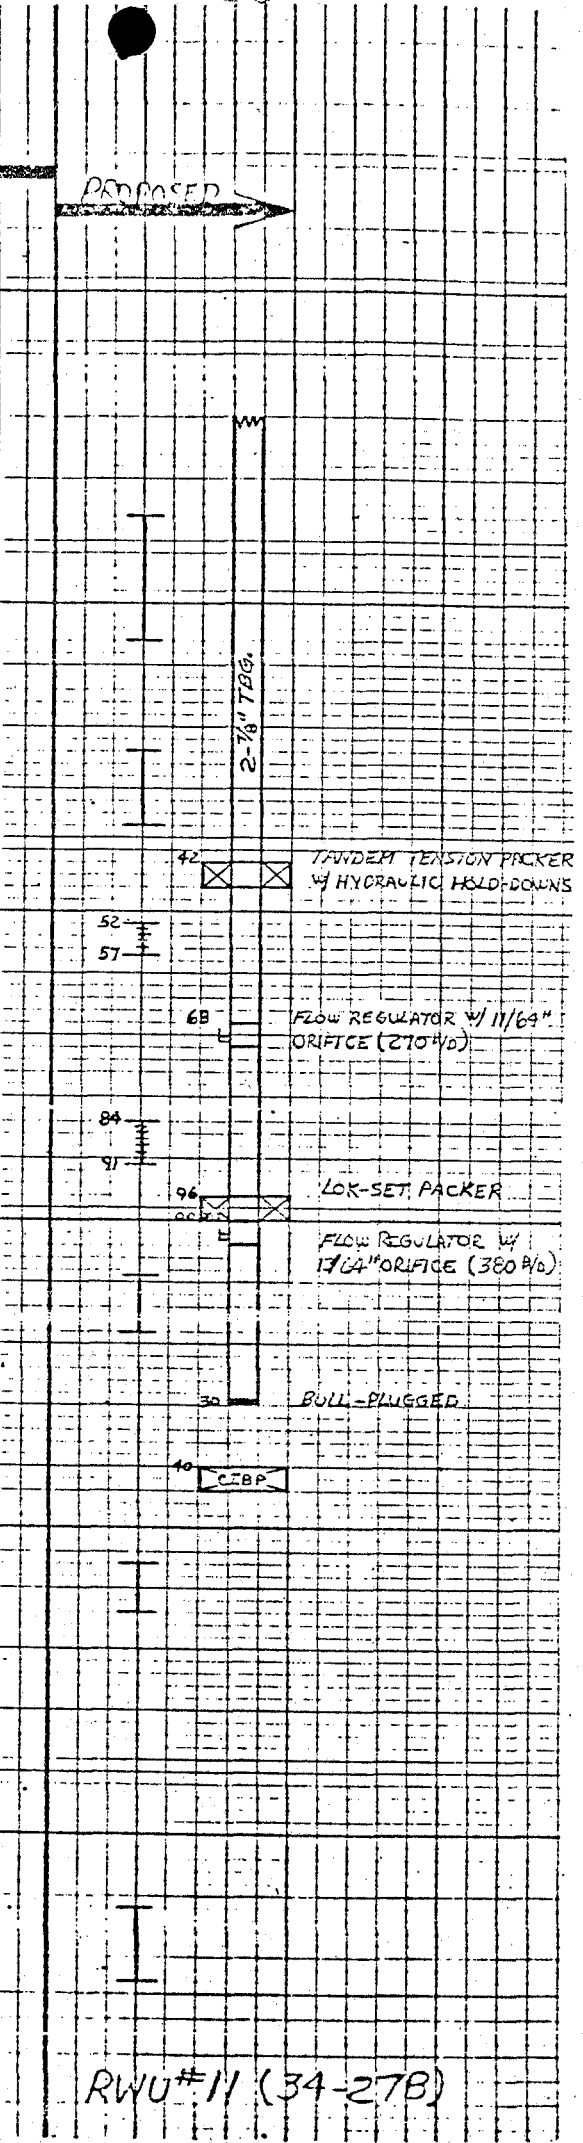 PROPOSED
2-7/8" TBG.
42
TANDEM TENSION PACKER
W/ HYDRAULIC HOLD-DOWNS
52
57
68
FLOW REGULATOR W/ 11/64"
ORIFICE (270 B/D)
84
91
96
LOK-SET PACKER
FLOW REGULATOR W/
13/64" ORIFICE (380 B/D)
30
BULL-PLUGGED
40
CIBP
RWU #11 (34-27B)